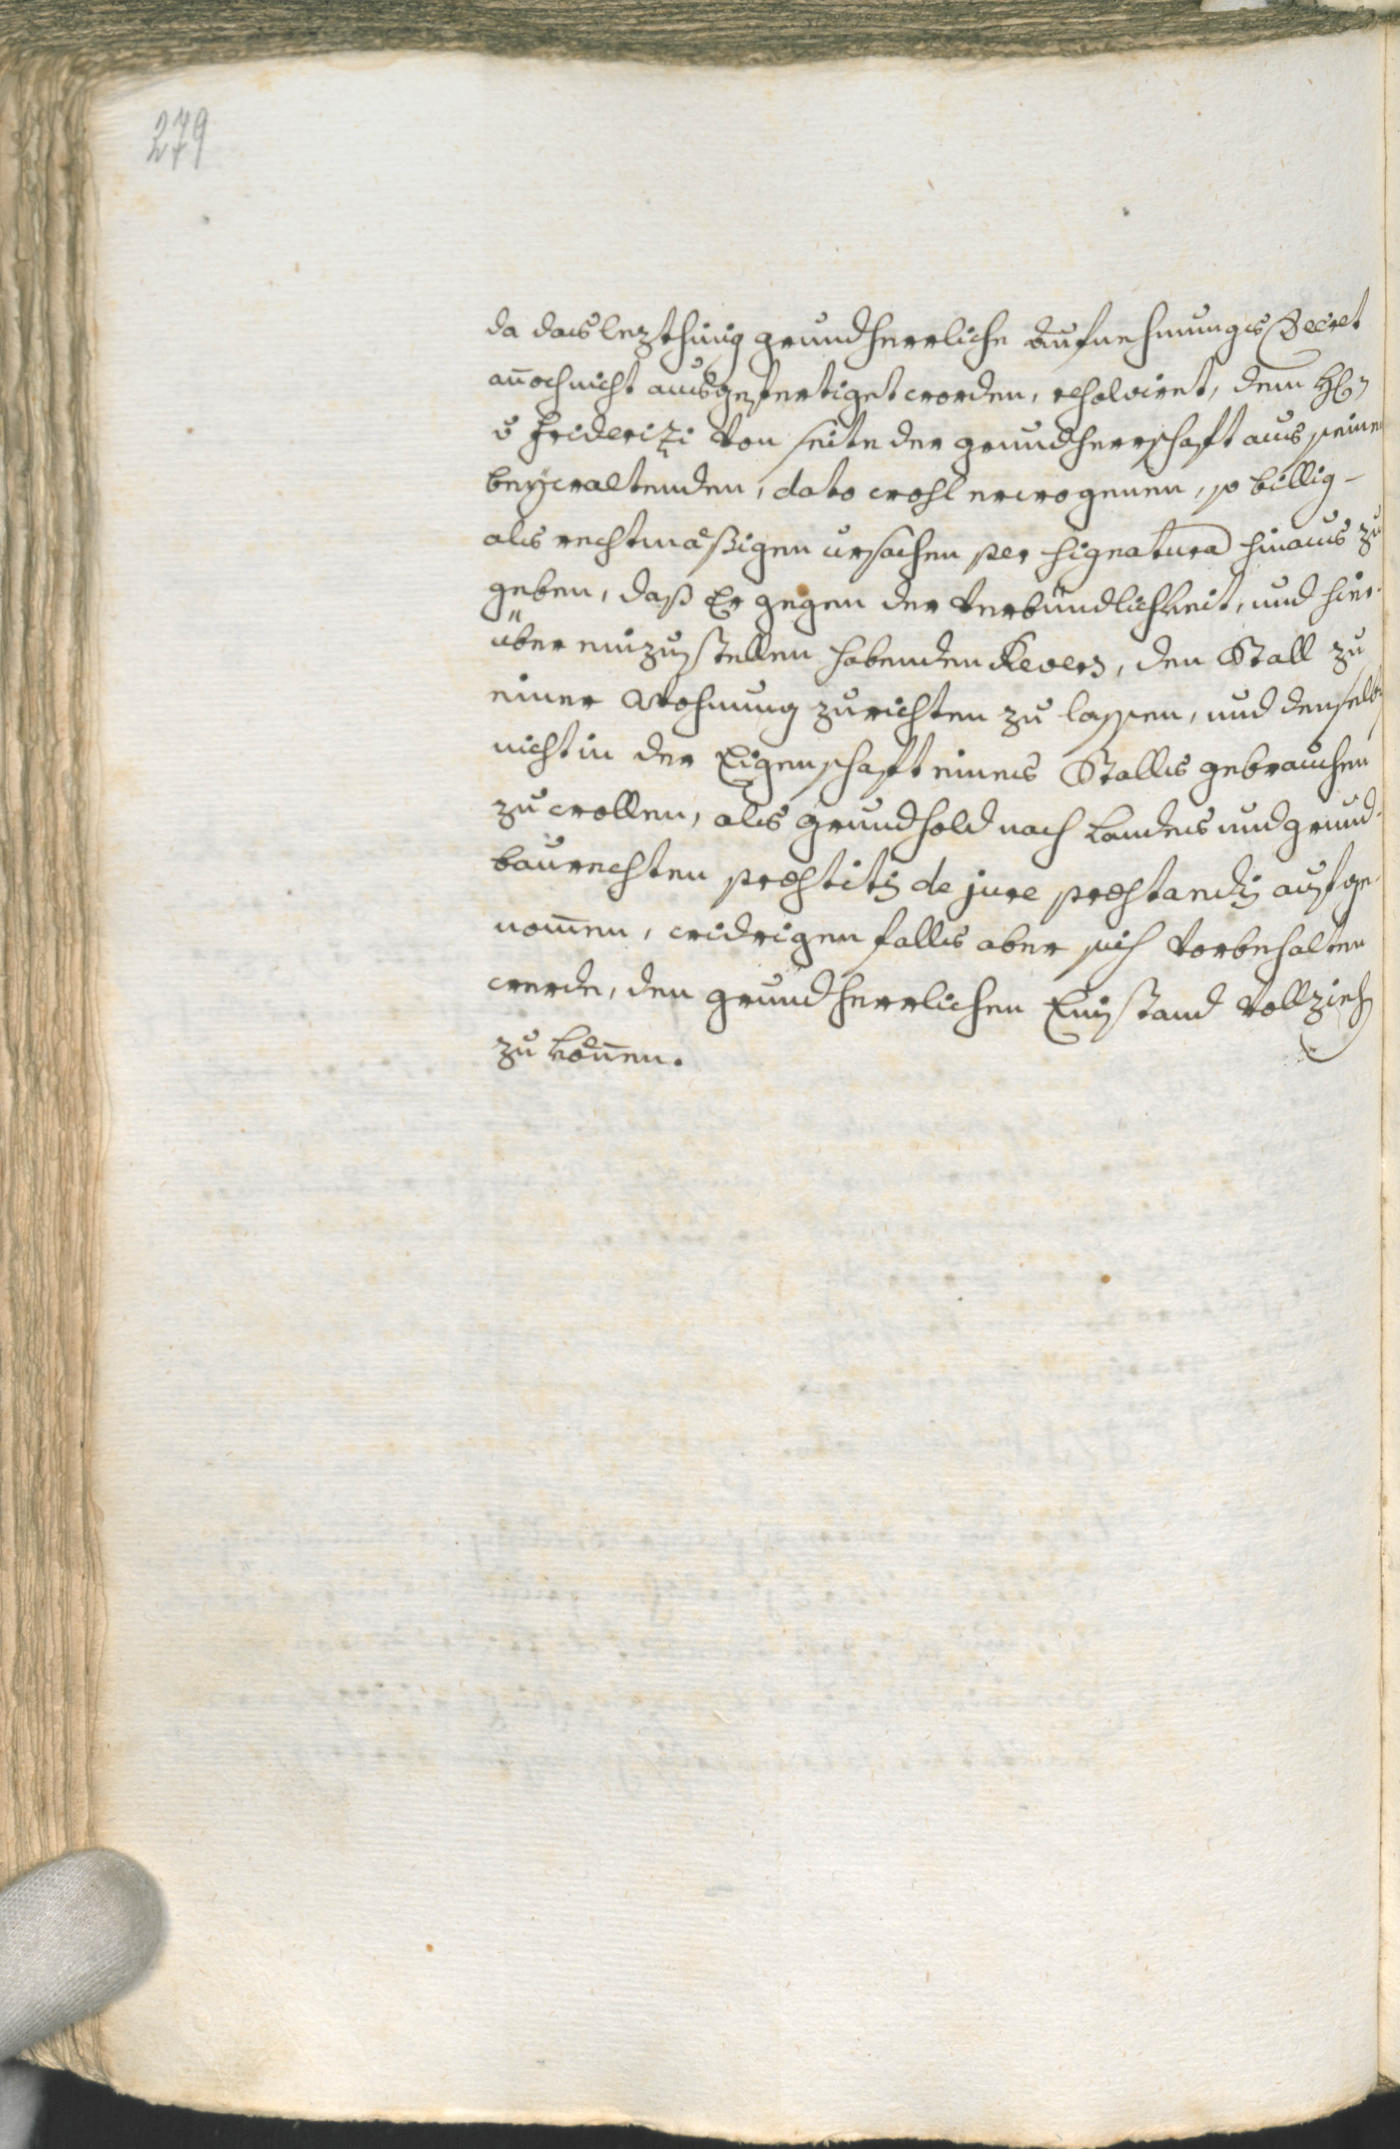 279
da das lezthinig grundherrliche Aufnehmungs Decret
anoch nicht ausgefertiget worden, resolviret, dem H:
v Friderizi von seite der grundherrschaft aus seinen
beÿwaltenden, dato wohl erwogenen, so billig-
als rechtmäßigen ursachen per Signatura hinaus zu
geben, daß Er gegen der verbündlichkeit, und hier-
über einzustellen habenden Revers, den Stall zu
einer Wohnung zurichten zu lassen, und denselben
nicht in der Eigenschaft eines Stalls gebrauchen
zu wollen, als grundhold nach Landes und grund-
baurechten præstitis de jure præstandis aufge-
nomen, widrigen falls aber sich vorbehalten
werde, den grundherrlichen Einstand vollziehen
zu könen.